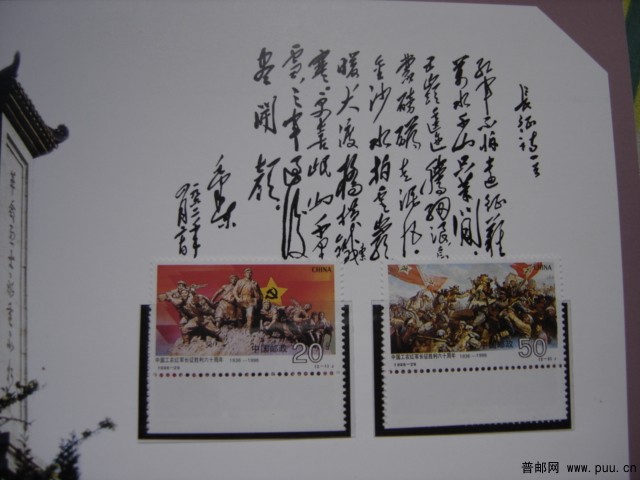 長征诗一首
红军不怕远征難
萬水千山只等闲
五嶺逶迤腾细浪乌
蒙磅礴走泥丸
金沙水拍云崖
暖大渡橋横铁索
寒更喜岷山千里
雪三军过后
尽開颜
毛泽东
一九六二年
CHINA
中国邮政
20分
中国工农红军长征胜利六十周年 1936-1996
1996-29
(2-1)J
CHINA
中国邮政
50分
中国工农红军长征胜利六十周年 1936-1996
1996-29
(2-2)J
普邮网 www.puu.cn